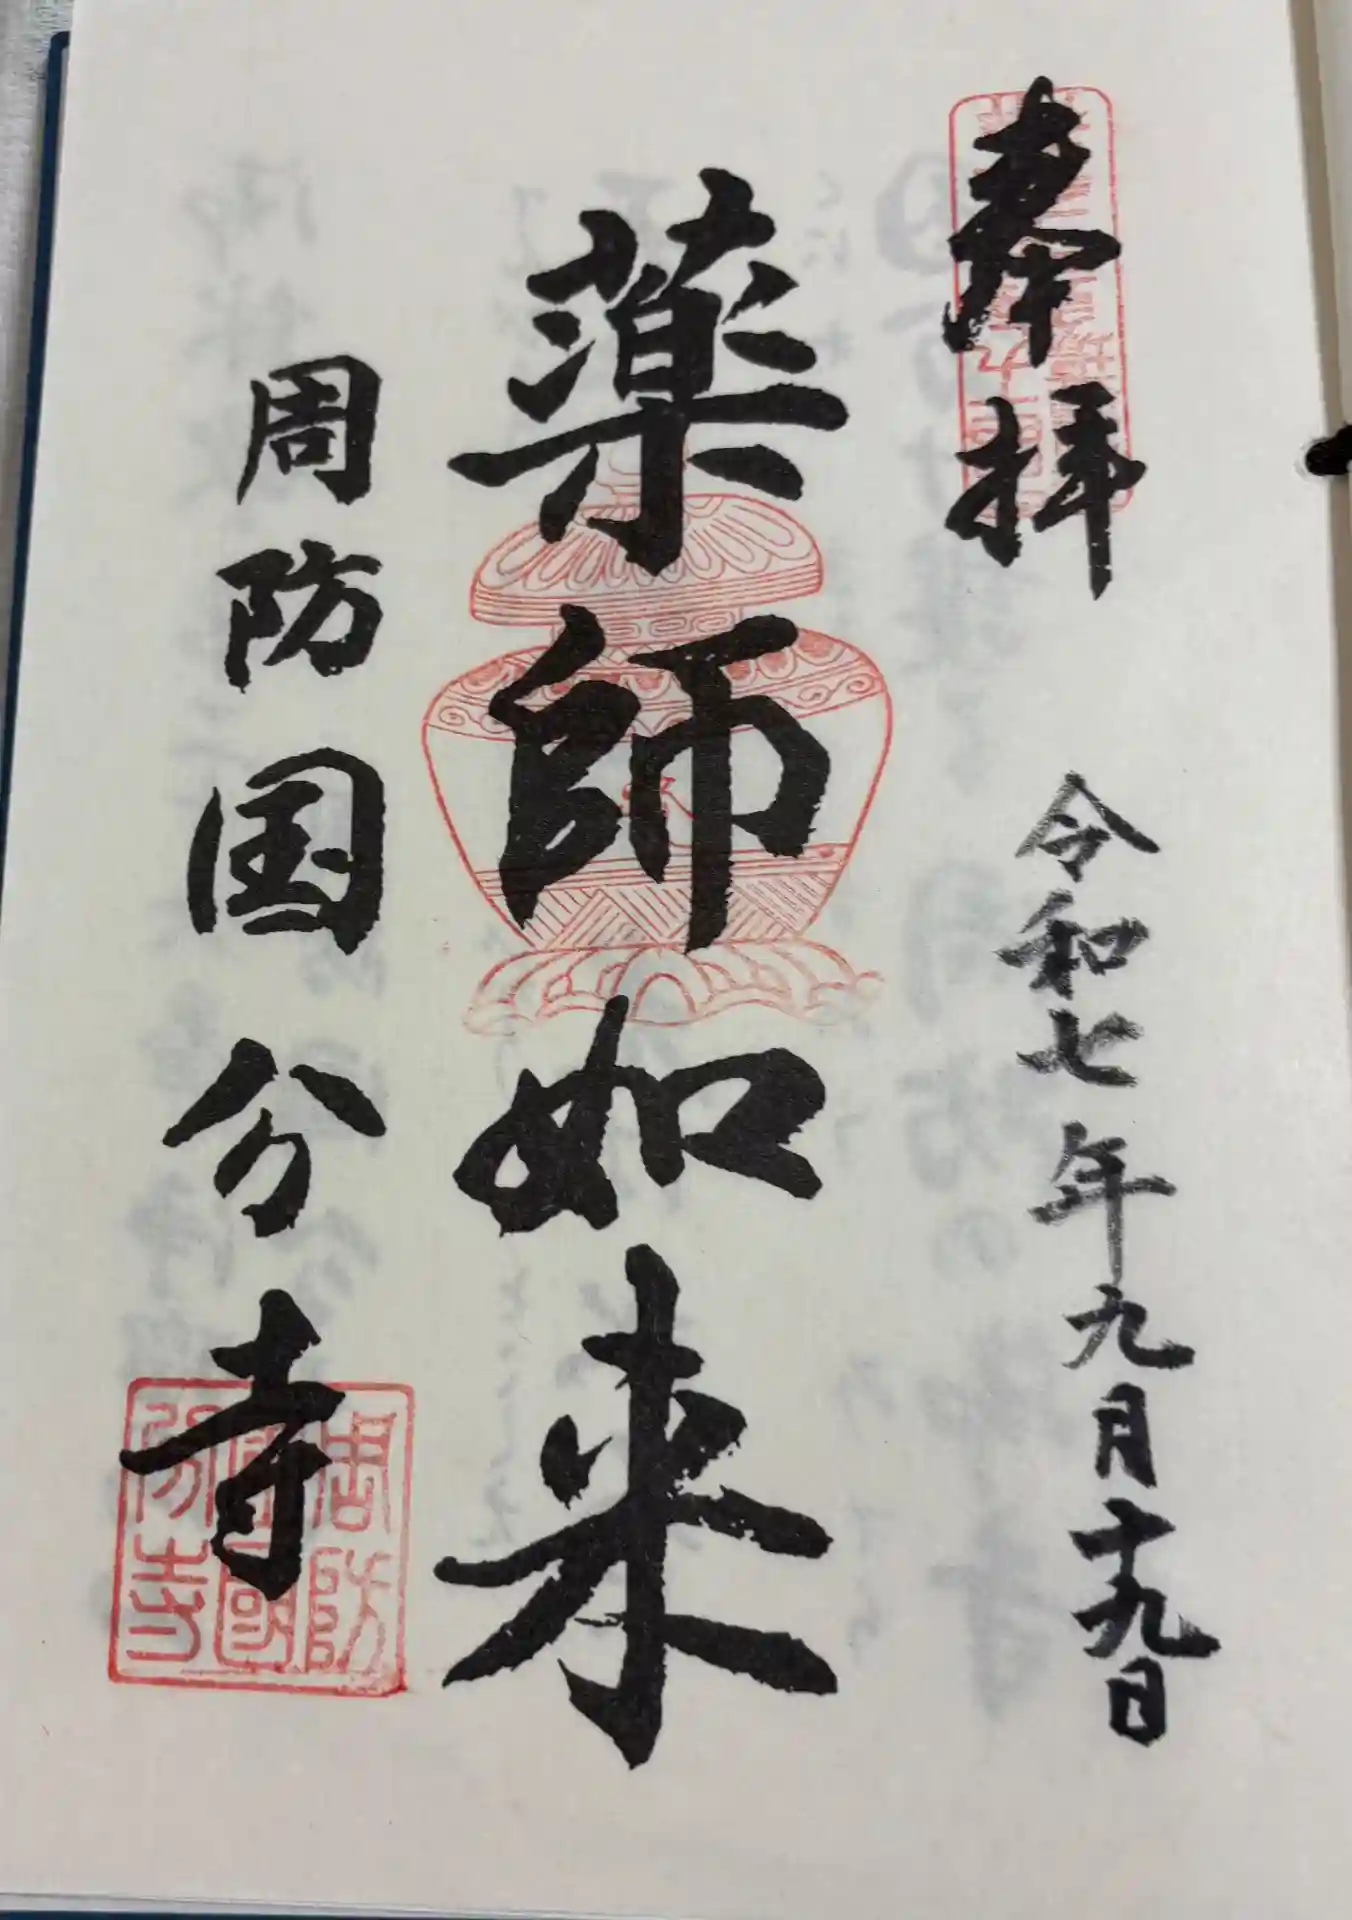 奉拝
令和七年九月十九日
薬師如来
周防国分寺
周防
國
寺